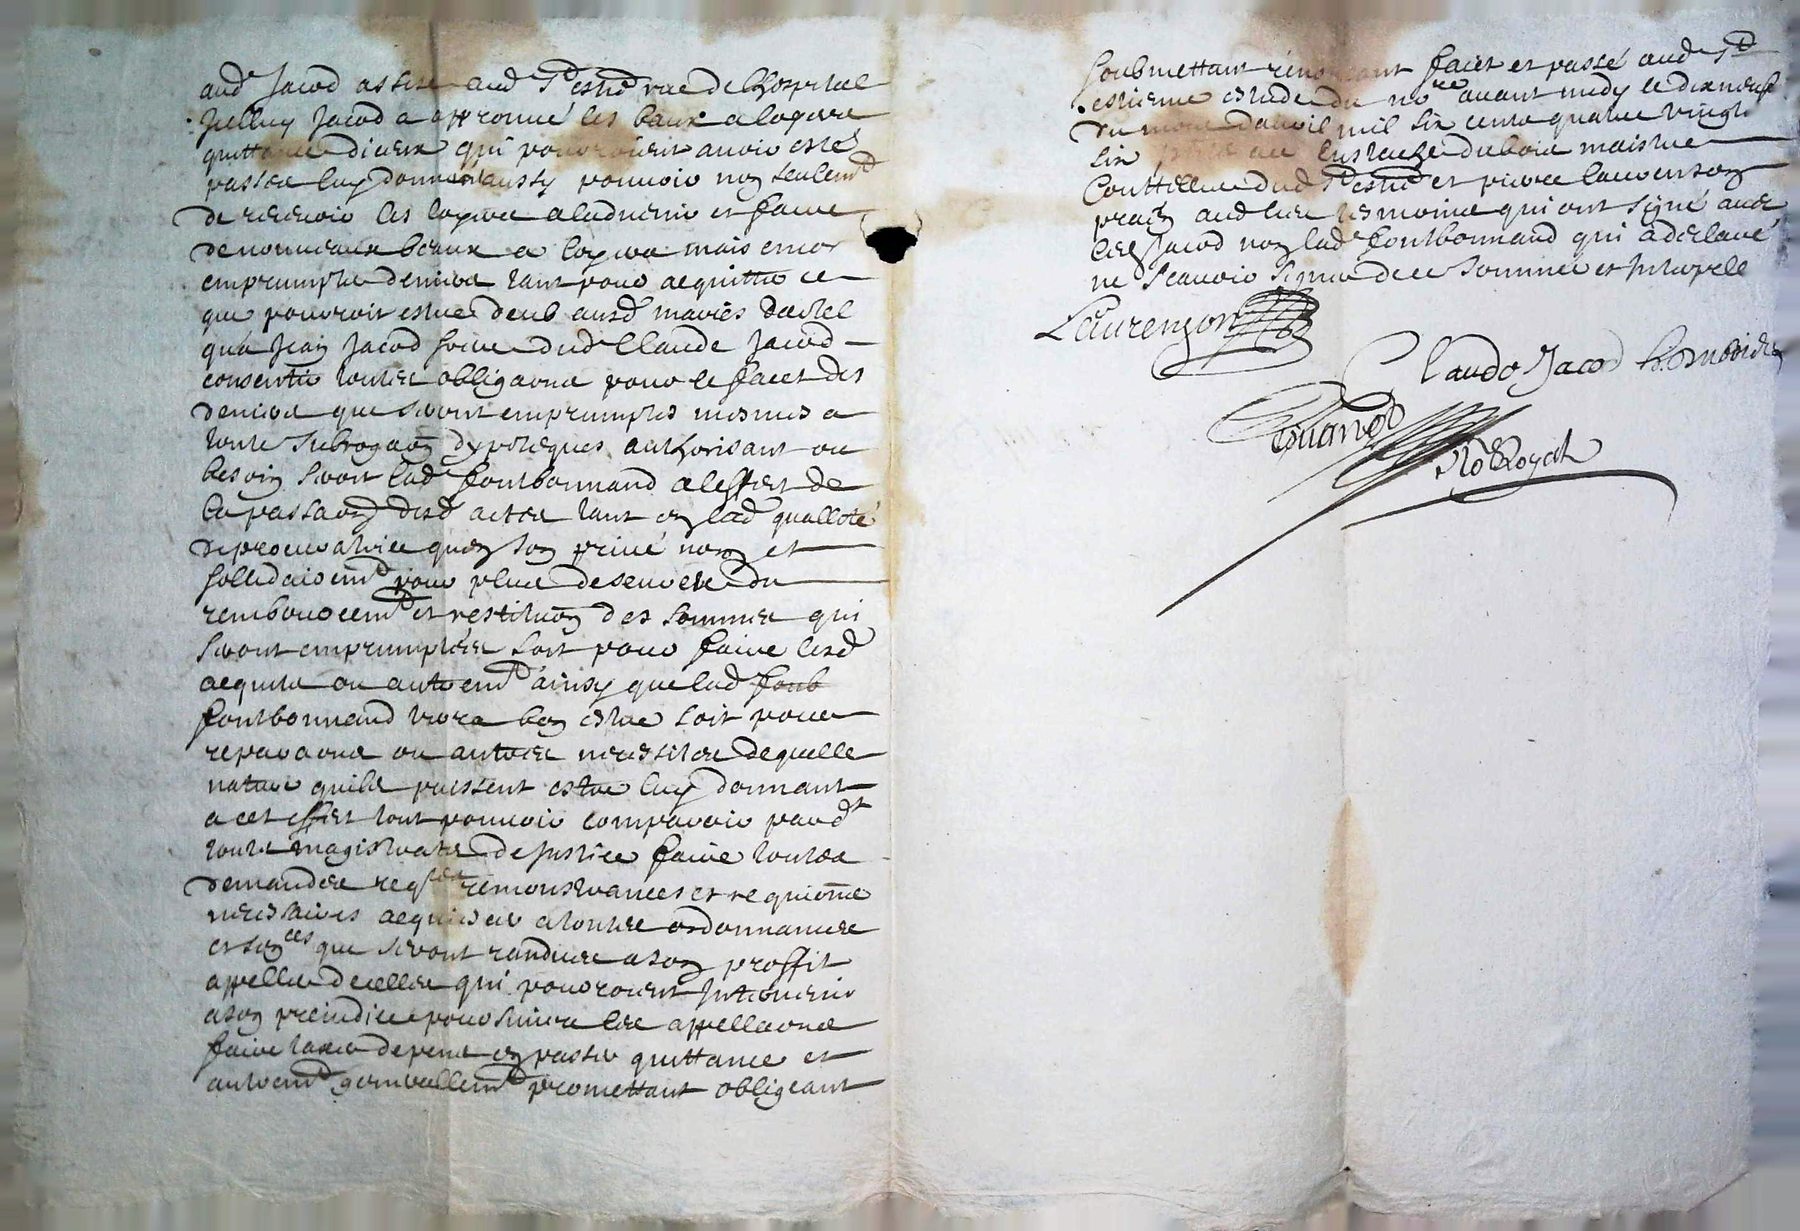 aud Jacod assize aud St estne rue de lhospital
Jcelluy Jacod a approuvé les baux a loyere
quittance diceux qui pourroient avoir esté
passée luy donnant aussy pouvoir non seulemt
de recevoir les loyers aladvenir et faire
de nouveaux beaux a loyers mais encor
emprumpter deniers tant pour acquitter ce
que pourroit estre deub ausd mariés
qua Jean Jacod frere dud Claude Jacod
consentir toutes obligaons pour le faict des
deniers que seront emprumptes mesmes a
toute subrogaon dypoteques authorisant ou
besoin seroit lad fontbonnand a leffect de
la passaon desd actes tant en lad quallité
de procuratrice quen son privé nom et
sollidairemt pour plus de seureté du
remboursemt et restituon des sommes qui
seront emprumptées soit pour faire lesd
acquits ou autremt ainsy que lad foub
fontbonnand verra bon estre soit pour
reparaons ou autres necessites de quelle
nature quils puissent estre luy donnant
a cet effet tout pouvoir comparoir pardt
touts magistrats de Justice faire toutes
demandes reqtes remonstrances et requions
necessaires acquiescer a toutes ordonnances
et sences que seront randues a son proffit
appeller de celles qui pourroient Intervenir
a son preiudice poursuivre les appellaons
faire taxer depens en passer quittance et
autremt generallemt promettant obligeant
soubmettant renonceant faict et passé aud St
estienne estude du nore avant midy le dixneuf
du mois davril mil six cents quatre vingts
six Eustache dubois maistre
Couttellier dud St estne et pierre laurenson
praen aud lieu tesmoins qui ont signé avec
led Jacod non lad fontbonnand qui a declaré
ne scavoir signer de ce sommée et Interpellé
Laurenson
Claude Jacod